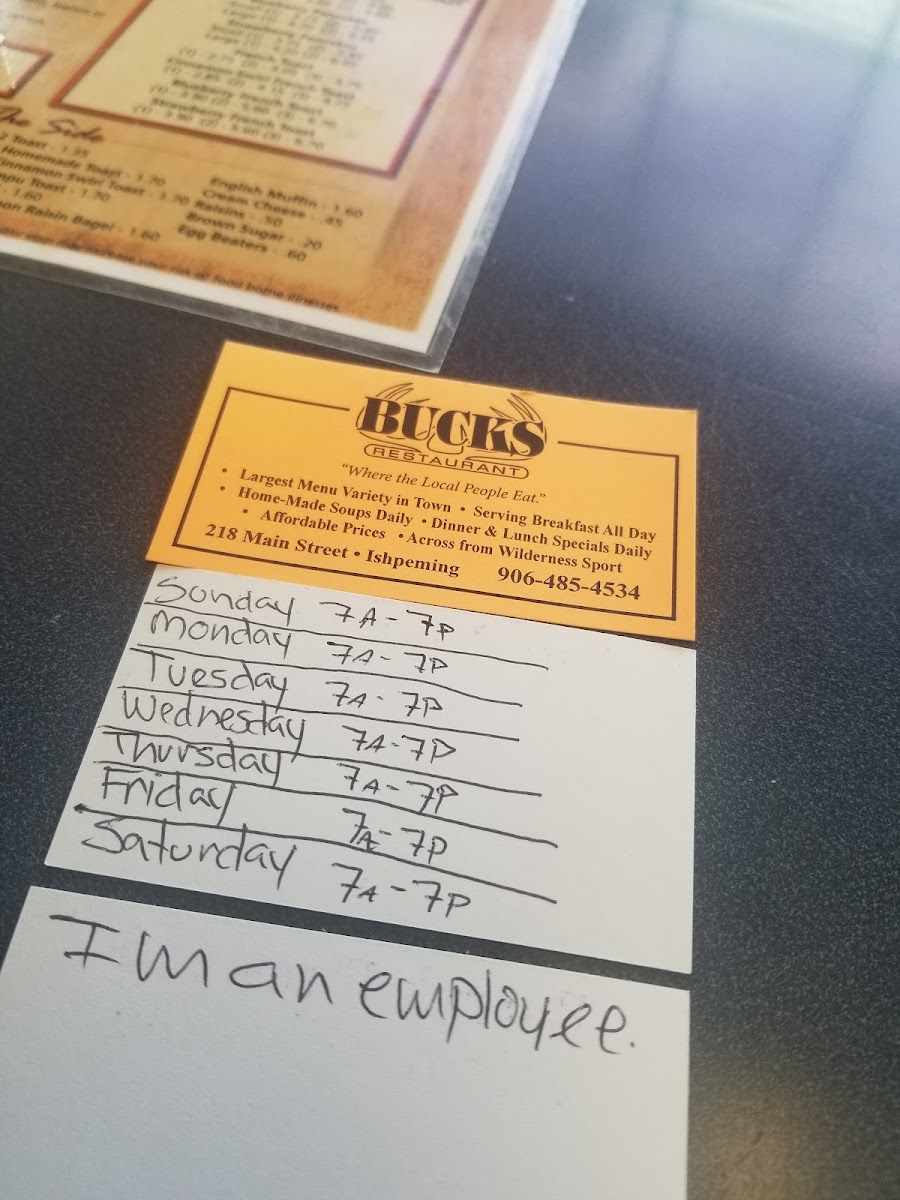 French Toast
Cinnamon Swirl French Toast
Blueberry French Toast
Strawberry French Toast
The Side
Toast - 1.35
Homemade Toast - 1.70
Cinnamon Swirl Toast - 1.70
Toast - 1.70
- 1.60
Raisin Bagel - 1.60
English Muffin - 1.60
Cream Cheese - .45
Raisins - .50
Brown Sugar - .20
Egg Beaters - .60
your risk of food borne illnesses
BUCKS
RESTAURANT
"Where the Local People Eat."
• Largest Menu Variety in Town • Serving Breakfast All Day
• Home-Made Soups Daily • Dinner & Lunch Specials Daily
• Affordable Prices • Across from Wilderness Sport
218 Main Street • Ishpeming 906-485-4534
Sunday 7A - 7P
Monday 7A - 7P
Tuesday 7A - 7P
Wednesday 7A - 7P
Thursday 7A - 7P
Friday 7A - 7P
Saturday 7A - 7P
Im an employee.